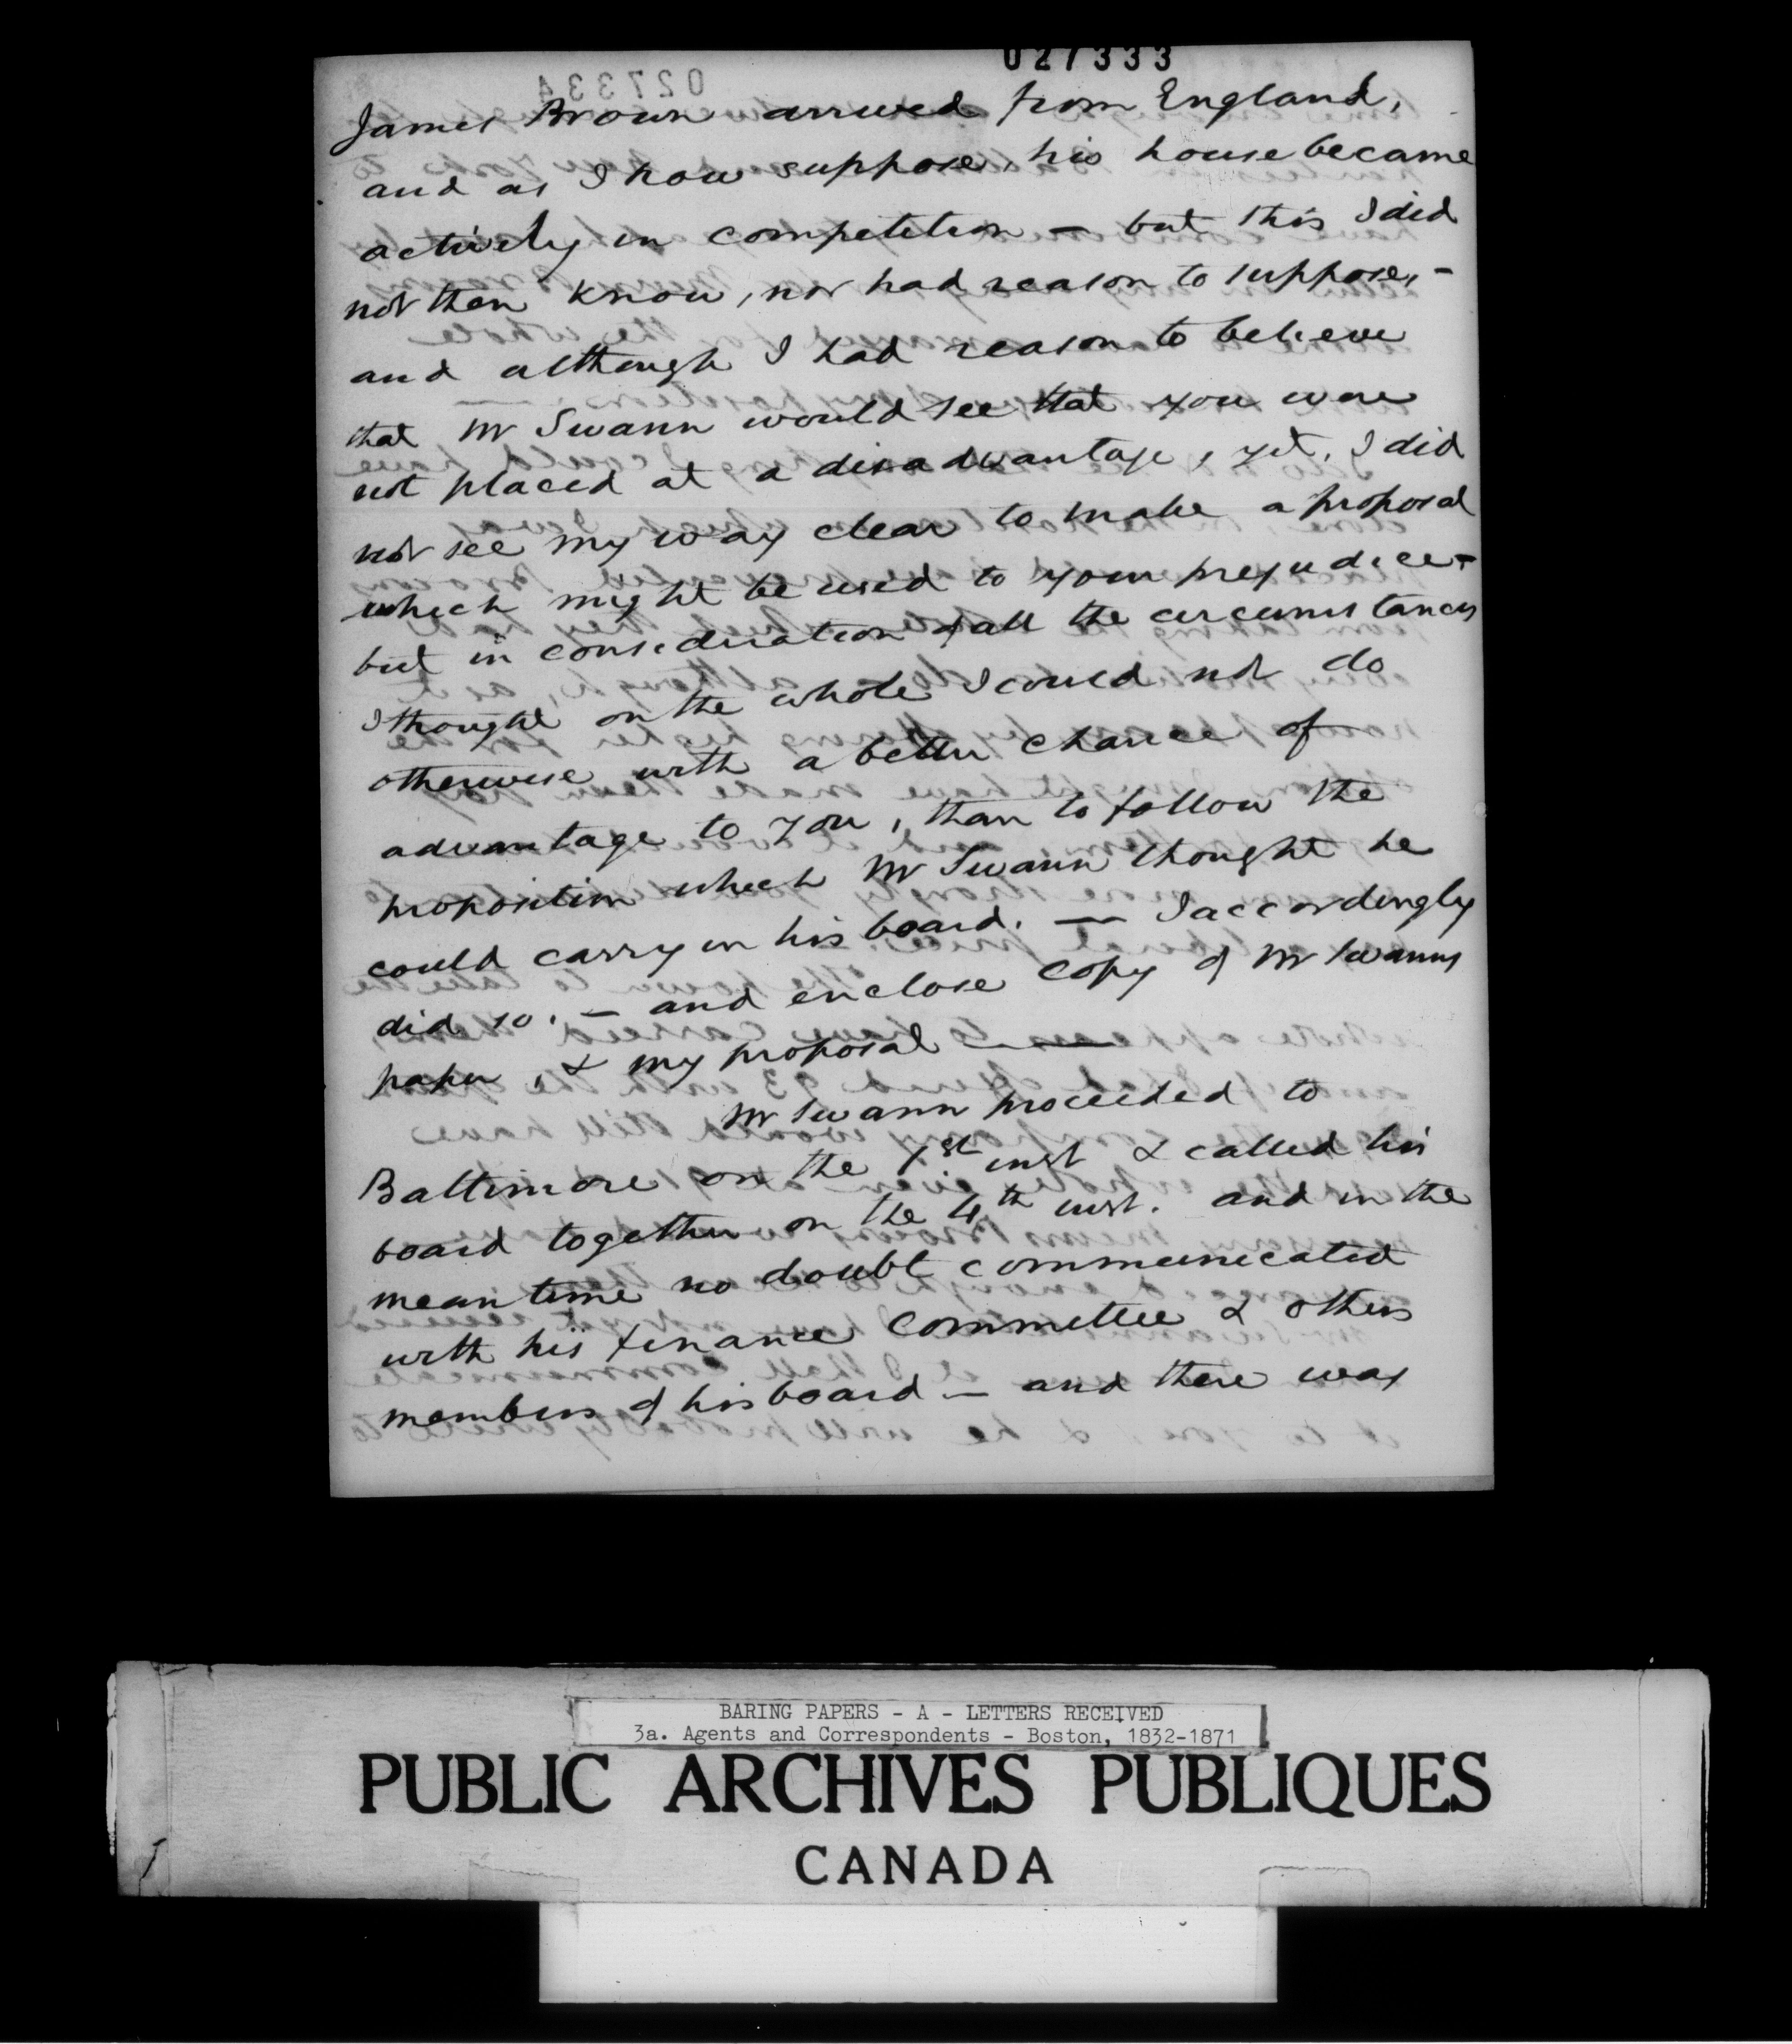 027333
027334
James Brown arrived from England,
and as I now suppose, his house became
actively in competition — but this I did
not then know, nor had reason to suppose, -
and although I had reason to believe
that Mr Swann would see that you were
not placed at a disadvantage, yet, I did
not see my way clear to make a proposal
which might be used to your prejudice -
but in consideration of all the circumstances
I thought on the whole I could not do
otherwise with a better chance of
advantage to you, than to follow the
proposition which Mr Swann thought he
could carry in his board. — I accordingly
did so. — and enclose copy of Mr Swanns
paper, & my proposal ——
Mr Swann proceeded to
Baltimore on the 1st inst & called his
board together on the 4th inst. and in the
meantime no doubt communicated
with his finance committee & others
members of his board — and there was
BARING PAPERS - A - LETTERS RECEIVED
3a. Agents and Correspondents - Boston, 1832-1871
PUBLIC ARCHIVES PUBLIQUES
CANADA